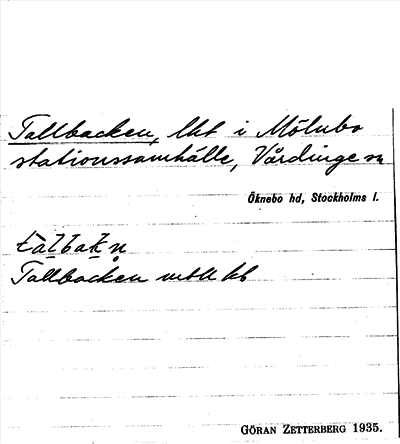 Tallbacken, lht i Mölnbo
stationssamhälle, Vårdinge sn
Öknebo hd, Stockholms l.
Tallbacken
GÖRAN ZETTERBERG 1935.